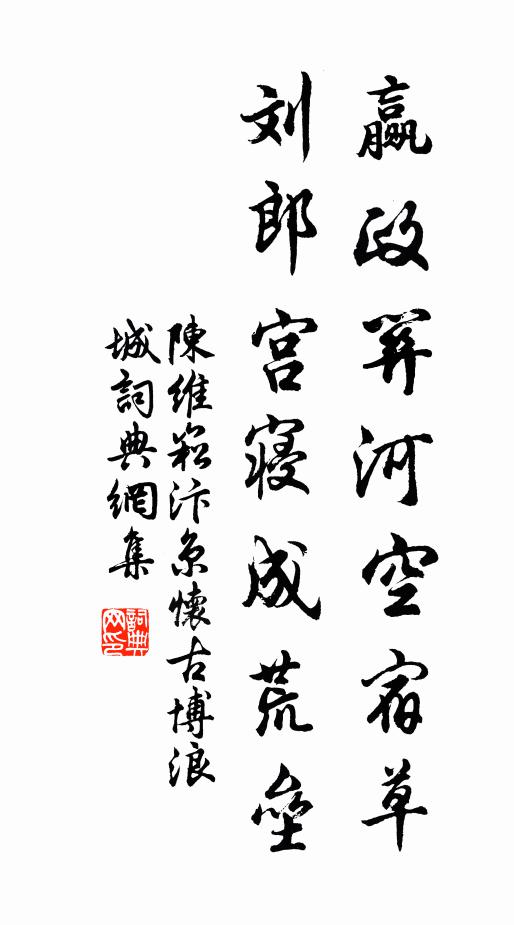 嬴政關河空宿草
刘郎宫寝成荒壘
陳維崧汴京懷古博浪
城詞典網集
詞典網印